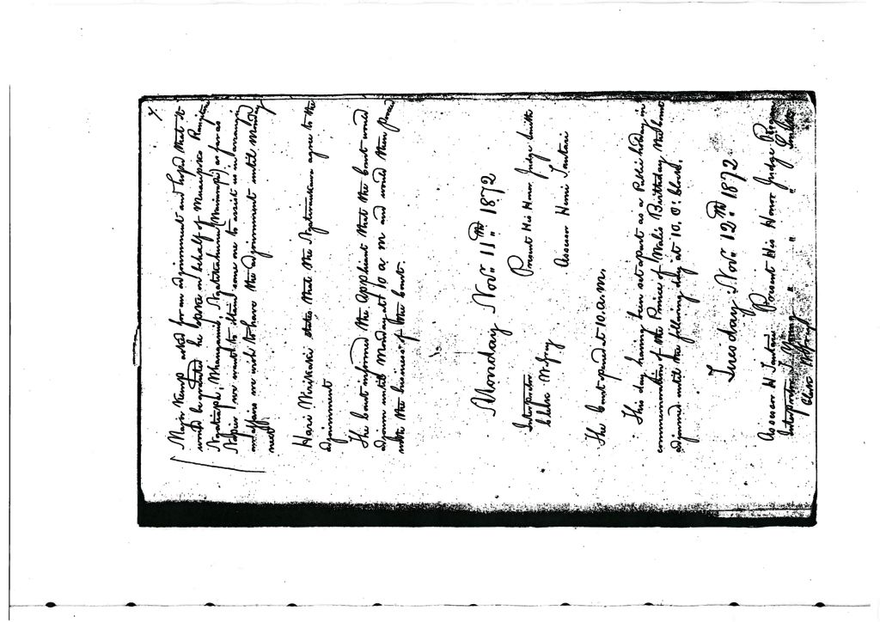 Major Kemp asked for an adjournment and hoped that it
would be granted he spoke on behalf of Muaupoko Rangitane
Ngatiapa, Whanganui,
Napier we want to send some one to assist us in arranging
our affairs we wish to have the adjournment until Monday
next
Hari Wirikake states that the Ngatiraukawa agree to the
adjournment.
The Court informed the applicant that the Court would
adjourn until Monday at 10 a m and would then proceed
with the business of the Court.
Monday Nov: 11th 1872
Present His Honor Judge Smith
Interpreter
Assessor Hemi Tautari
Clerk
The Court opened at 10. a.m.
This day having been set apart as a Public holiday in
commemoration of the Prince of Wales Birthday the Court
adjourned until the following day at 10. O: Clock.
Tuesday Nov: 12th 1872
Present His Honor Judge Rogan
Assessor H Tautari " " " Smith
Interpreter J. Young "
Clerk